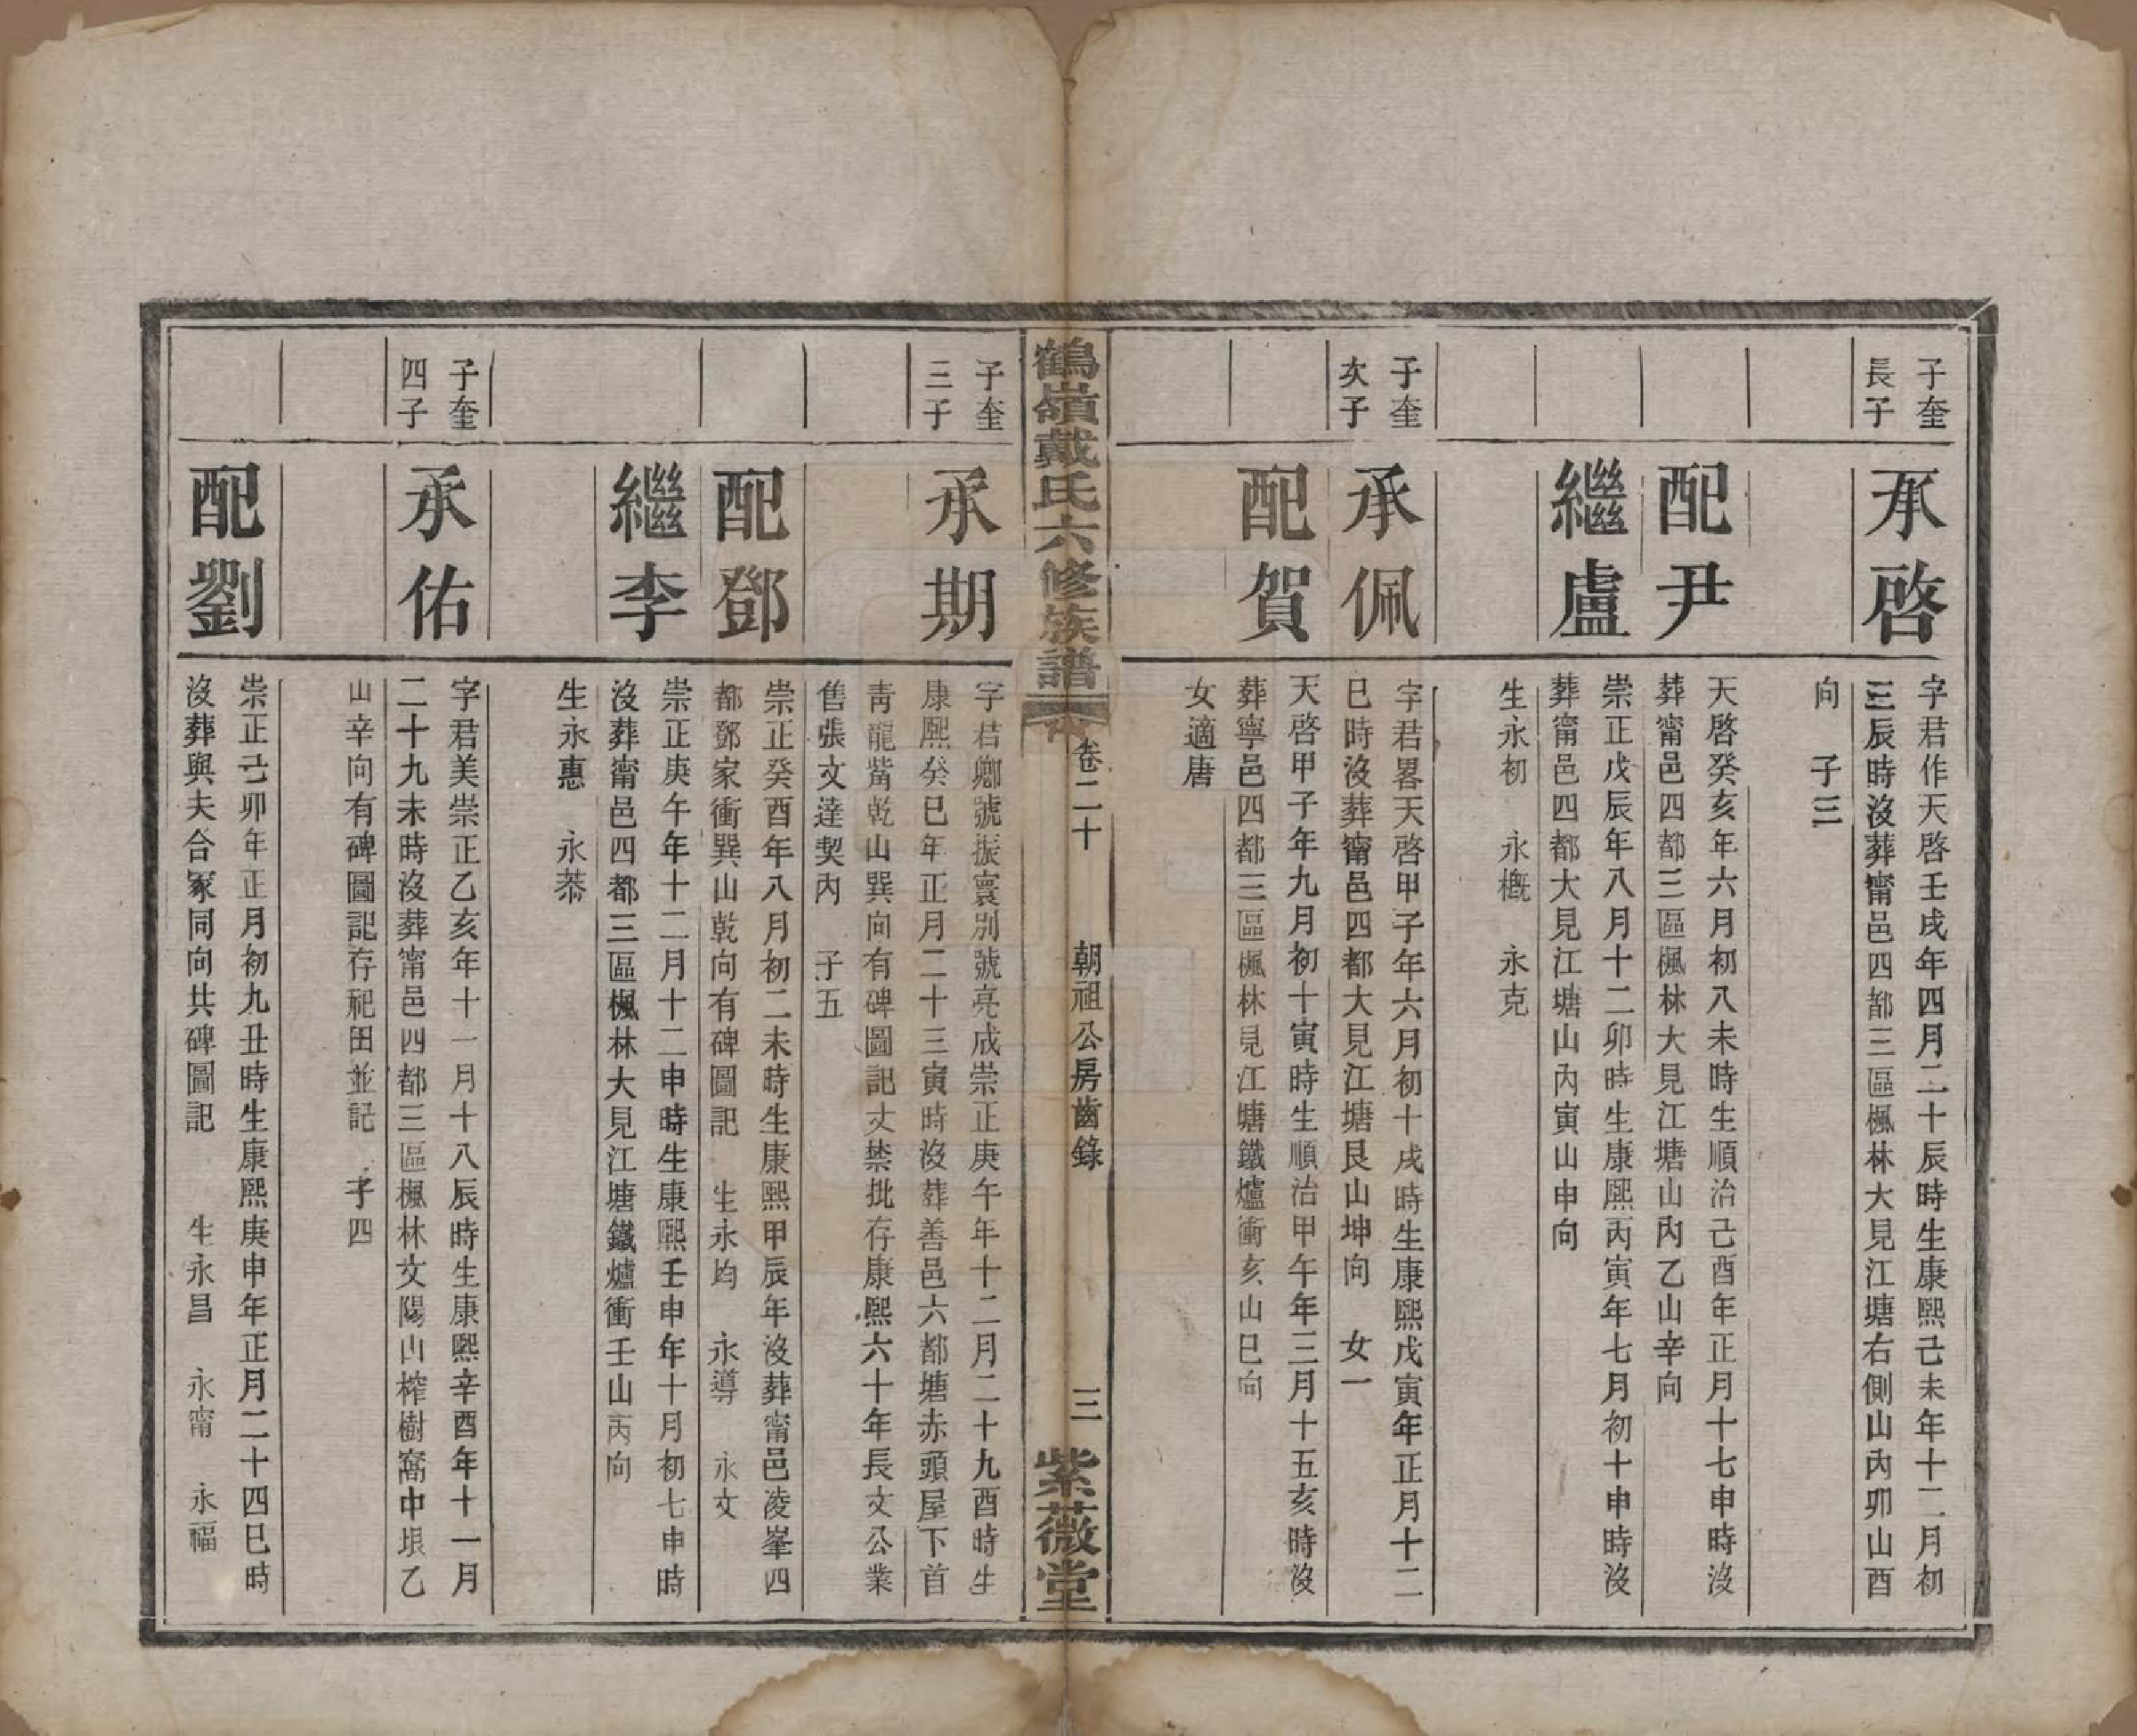 子奎
長子
承啓
字君作天啓壬戌年四月二十辰時生康熙己未年十二月初
三辰時沒葬甯邑四都三區楓林大見江塘右側山內卯山酉
向　子三
配尹
天啓癸亥年六月初八未時生順治己酉年正月十七申時沒
葬甯邑四都三區楓林大見江塘山內乙山辛向
繼盧
崇正戊辰年八月十二卯時生康熙丙寅年七月初十申時沒
葬甯邑四都大見江塘山內寅山申向
生永初　永概　永克
子奎
次子
承佩
字君畧天啓甲子年六月初十戌時生康熙戊寅年正月十二
巳時沒葬甯邑四都大見江塘艮山坤向　女一
配賀
天啓甲子年九月初十寅時生順治甲午年三月十五亥時沒
葬寧邑四都三區楓林見江塘鐵爐衝亥山巳向
女適唐
鶴嶺戴氏六修族譜
卷二十　朝祖公房齒錄　三
紫薇堂
子奎
三子
承期
字君卿號振寰別號亮成崇正庚午年十二月二十九酉時生
康熙癸巳年正月二十三寅時沒葬善邑六都塘赤頭屋下首
青龍觜乾山巽向有碑圖記丈禁批存康熙六十年長文公業
售張文達契內　子五
配鄧
崇正癸酉年八月初二未時生康熙甲辰年沒葬甯邑凌峯四
都鄧家衝巽山乾向有碑圖記　生永均　永導　永文
繼李
崇正庚午年十二月十二申時生康熙壬申年十月初七申時
沒葬甯邑四都三區楓林大見江塘鐵爐衝壬山丙向
生永惠　永恭
子奎
四子
承佑
字君美崇正乙亥年十一月十八辰時生康熙辛酉年十一月
二十九未時沒葬甯邑四都三區楓林文陽山榨樹窩中垠乙
山辛向有碑圖記存祀田並記　子四
配劉
崇正己卯年正月初九丑時生康熙庚申年正月二十四巳時
沒葬與夫合冢同向共碑圖記　生永昌　永甯　永福